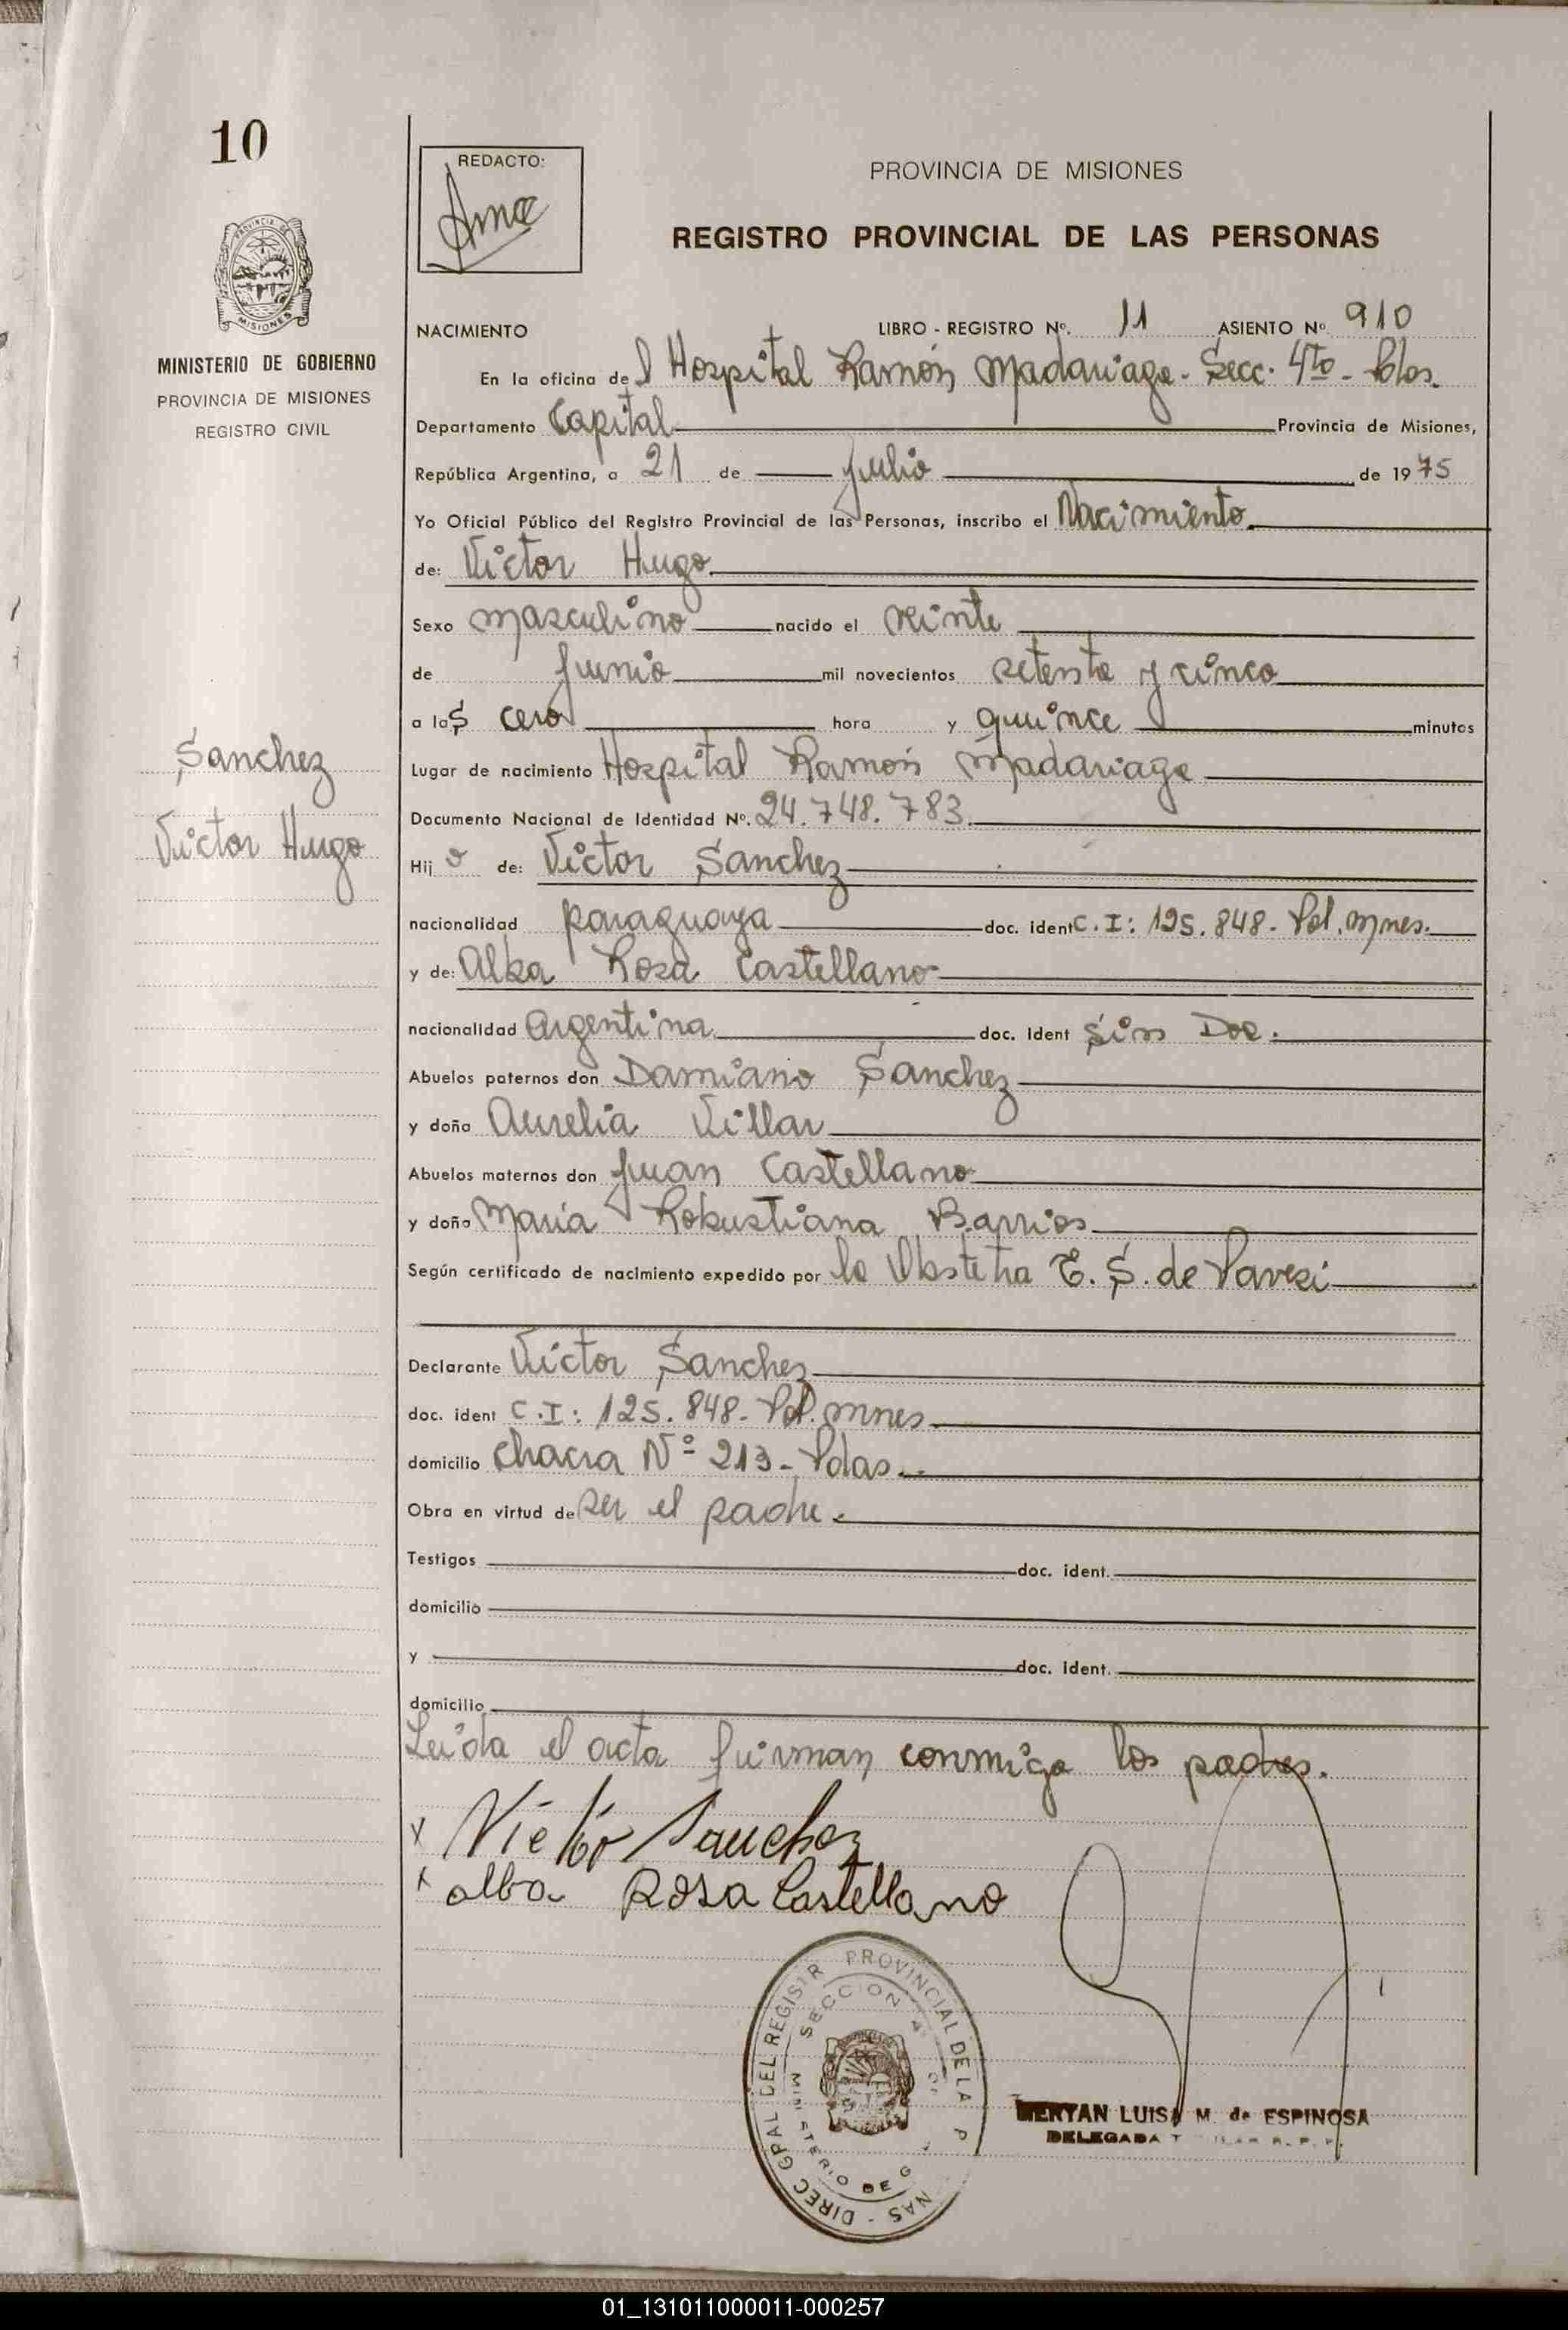 10
REDACTO:
PROVINCIA DE MISIONES
REGISTRO PROVINCIAL DE LAS PERSONAS
PROVINCIA DE
MISIONES
MINISTERIO DE GOBIERNO
PROVINCIA DE MISIONES
REGISTRO CIVIL
NACIMIENTO LIBRO - REGISTRO Nº. 11 ASIENTO Nº 910
En la oficina del Hospital Ramón Madariaga - Secc. 4ta -
Departamento Capital Provincia de Misiones,
República Argentina, a 21 de Julio de 1975
Yo Oficial Público del Registro Provincial de las Personas, inscribo el Nacimiento
de: Victor Hugo
Sexo masculino nacido el veinte
de Junio mil novecientos setenta y cinco
a las cero hora y quince minutos
Sanchez
Victor Hugo
Lugar de nacimiento Hospital Ramón Madariaga
Documento Nacional de Identidad Nº. 24.748.783.
Hijo de: Victor Sanchez
nacionalidad paraguaya doc. ident C.I: 125.848 - Pol. Mnes.
y de: Alba Rosa Castellano
nacionalidad Argentina doc. ident Sin Doc.
Abuelos paternos don Damiano Sanchez
y doña Aurelia Villar
Abuelos maternos don Juan Castellano
y doña Maria Robustiana Barrios
Según certificado de nacimiento expedido por la Obstetra E. S. de Pavesi
Declarante Victor Sanchez
doc. ident C.I: 125.848 - Pol. Mnes
domicilio Chacra Nº 213 - Pdas.
Obra en virtud de ser el padre.
Testigos doc. ident.
domicilio
y doc. ident.
domicilio
Leida el acta firman conmigo los padres.
x Victor Sanchez
x alba Rosa Castellano
DIREC GRAL DEL REGISTR PROVINCIAL DE LA P NAS -
SECCION 4
MINISTERIO DE G
LUISA M. de ESPINOSA
DELEGADA
01_131011000011-000257